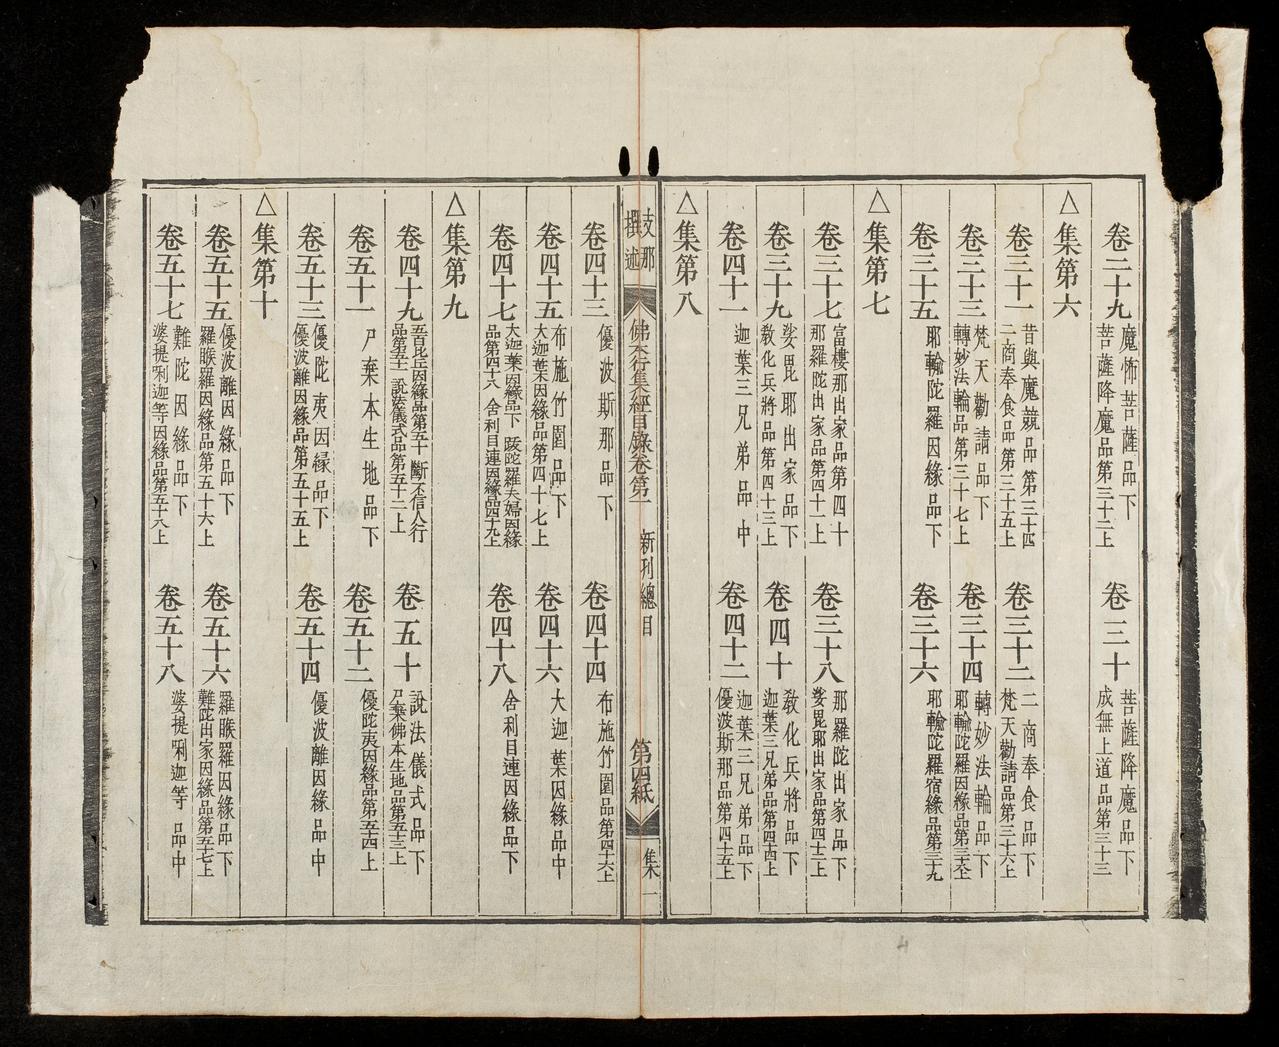 卷二十九 魔怖菩薩品下 菩薩降魔品第三十二上 卷三十 菩薩降魔品下 成無上道品第三十三
△集第六
卷三十一 昔與魔競品第三十四 二商奉食品第三十五上 卷三十二 二商奉食品下 梵天勸請品第三十六上
卷三十三 梵天勸請品下 轉妙法輪品第三十七上 卷三十四 轉妙法輪品下 耶輸陀羅因緣品第三十八上
卷三十五 耶輸陀羅因緣品下 卷三十六 耶輸陀羅宿緣品第三十九
△集第七
卷三十七 富樓那出家品第四十 那羅陀出家品第四十一上 卷三十八 那羅陀出家品下 娑毘耶出家品第四十二上
卷三十九 娑毘耶出家品下 敎化兵將品第四十三上 卷四十 敎化兵將品下 迦葉三兄弟品第四十四上
卷四十一 迦葉三兄弟品中 卷四十二 迦葉三兄弟品下 優波斯那品第四十五上
△集第八
支那撰述 佛本行集經目錄卷第一 新刊總目 第四紙 集一
卷四十三 優波斯那品下 卷四十四 布施竹園品第四十六上
卷四十五 布施竹園品下 大迦葉因緣品第四十七上 卷四十六 大迦葉因緣品中
卷四十七 大迦葉因緣品下 跋陀羅夫婦因緣品第四十八 舍利目連因緣品四十九上 卷四十八 舍利目連因緣品下
△集第九
卷四十九 五百比丘因緣品第五十 斷不信人行品第五十一 說法儀式品第五十二上 卷五十 說法儀式品下 尸棄佛本生地品第五十三上
卷五十一 尸棄本生地品下 卷五十二 優陀夷因緣品第五十四上
卷五十三 優陀夷因緣品下 優波離因緣品第五十五上 卷五十四 優波離因緣品中
△集第十
卷五十五 優波離因緣品下 羅睺羅因緣品第五十六上 卷五十六 羅睺羅因緣品下 難陀出家因緣品第五十七上
卷五十七 難陀因緣品下 婆提唎迦等因緣品第五十八上 卷五十八 婆提唎迦等品中